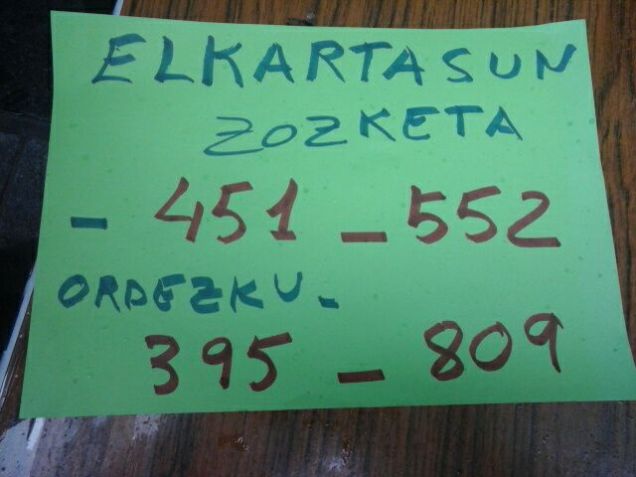 ELKARTASUN
ZOZKETA
- 451 - 552
ORDEZKU -
395 - 809